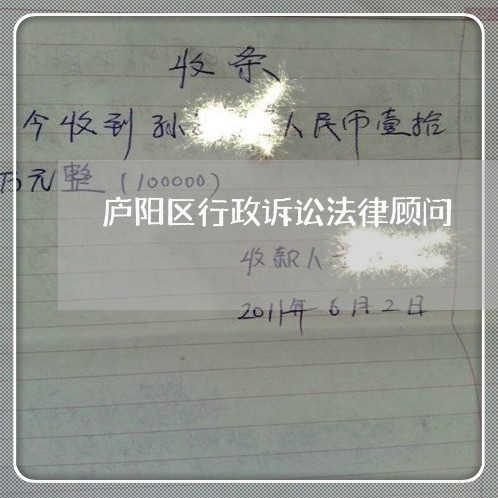 收条
今收到孙 人民币壹拾
万元整(100000)
庐阳区行政诉讼法律顾问
收款人
2011年6月2日